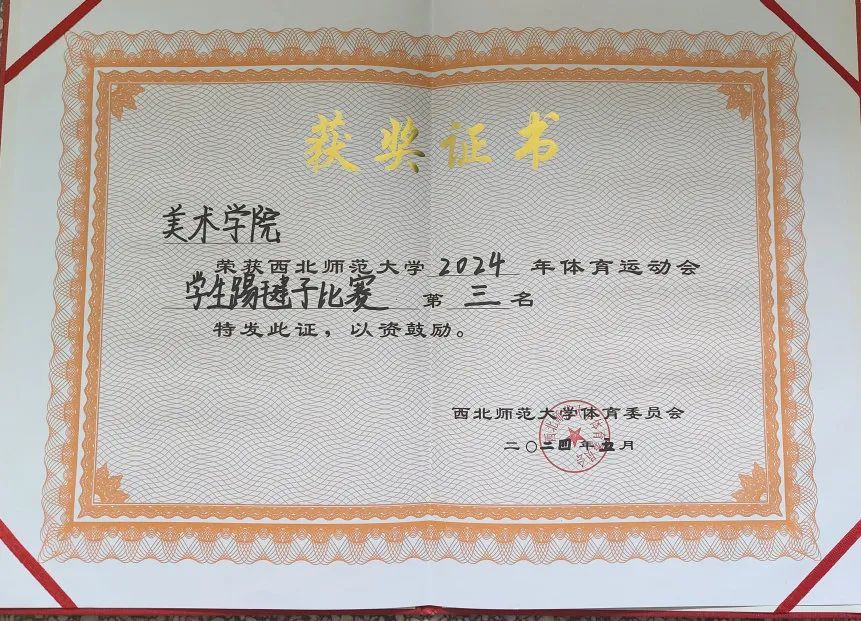 获奖证书
美术学院
荣获西北师范大学 2024 年体育运动会
学生踢毽子比赛 第 三 名
特发此证，以资鼓励。
西北师范大学体育委员会
二〇二四年五月